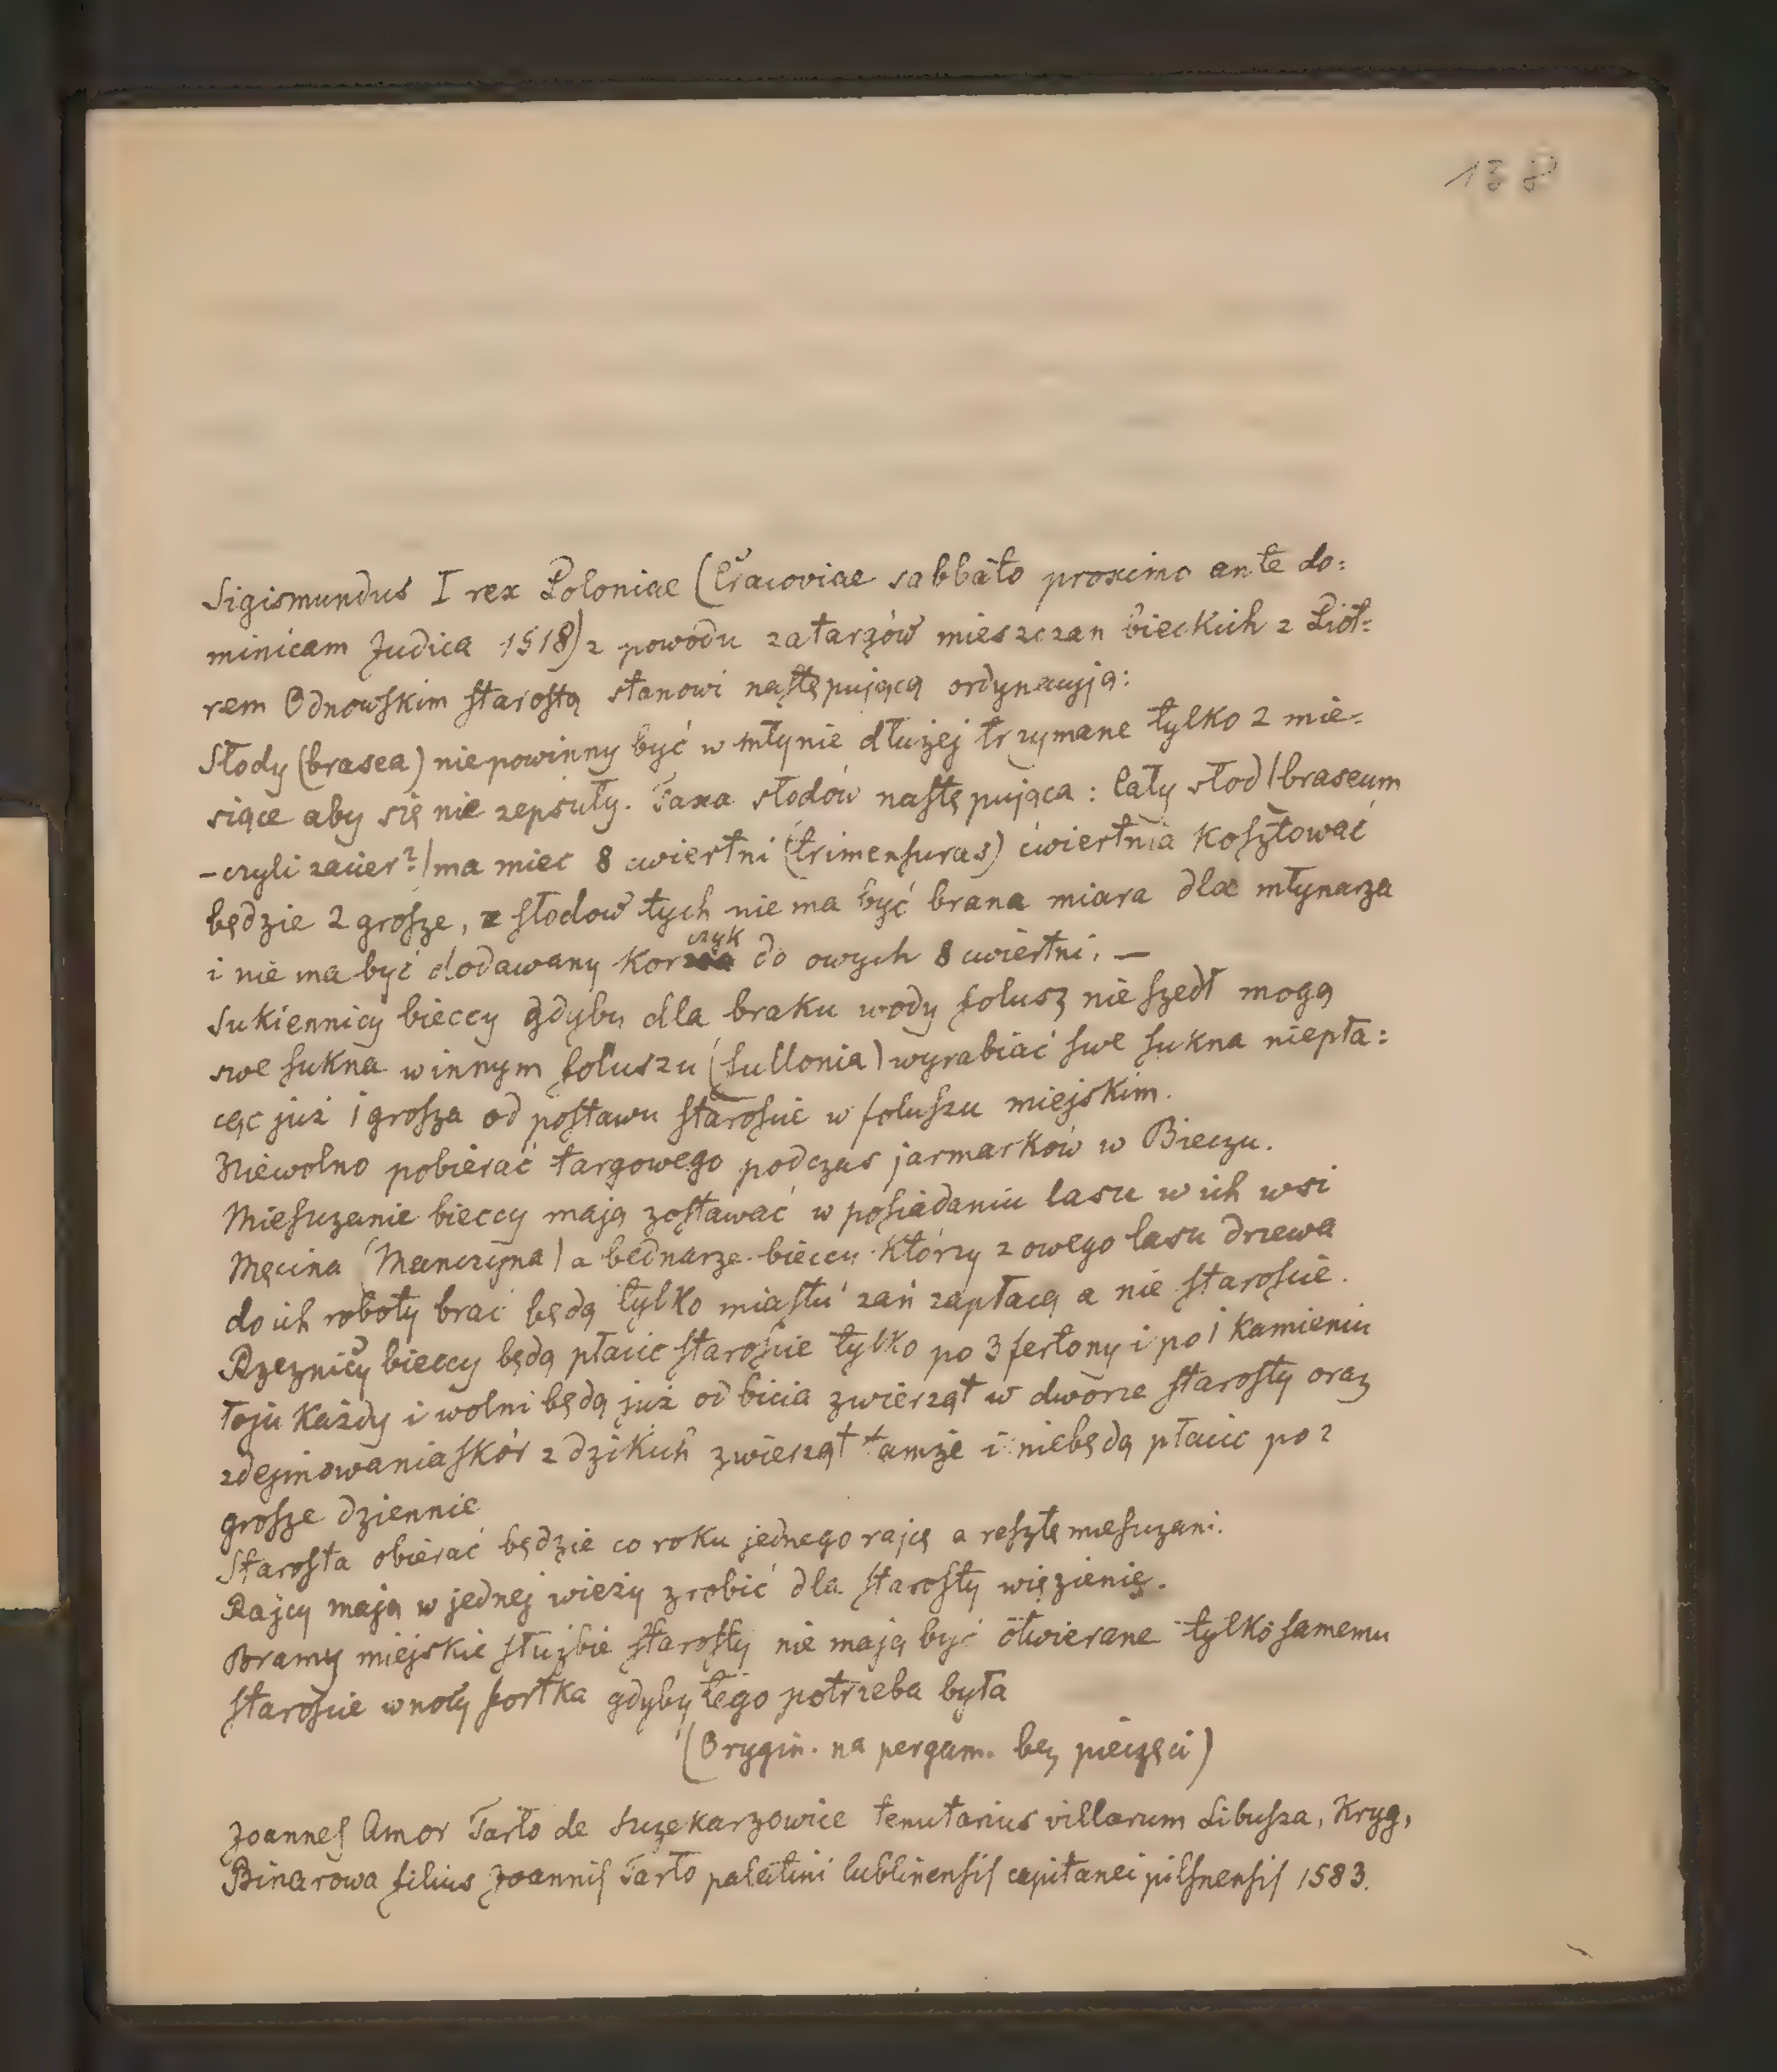 138
Sigismundus I rex Poloniae (Cracoviae sabbato proximo ante do:
minicam Judica 1518) z powodu zatargów mieszczan bieckich z Piot:
rem Odnowskim starostą stanowi następującą ordynacyją:
Słody (brasea) niepowinny być w młynie dłużej trzymane tylko 2 mie:
siące aby się nie zepsuły. Taxa słodów następująca: Cały słod /braseum
– czyli zacier?/ ma miec 8 cwiertni (trimensuras) ćwiertnia kosztować
będzie 2 grosze, z słodow tych nie ma być brana miara dla młynarza
i nie ma być dodawany korczyk do owych 8 cwiertni. —
Sukiennicy bieccy gdyby dla braku wody folusz nie szedł mogą
swe sukna w innym foluszu (fullonia) wyrabiać swe sukna niepła:
cąc już 1 grosza od postawu staroscie w foluszu miejskim.
Niewolno pobierać targowego podczas jarmarków w Bieczu.
Miesczanie bieccy mają zostawać w posiadaniu lasu w ich wsi
Męcina (Manczyna) a bednarze bieccy którzy z owego lasu drzewa
do ich roboty brać będą tylko miastu zań zapłacą a nie staroscie.
Rzeznicy bieccy będą płacic staroscie tylko po 3 fertony i po 1 kamieniu
łoju każdy i wolni będą już od bicia zwierząt w dworze starosty oraz
zdejmowania skór z dzikich zwierząt tamże i niebędą płacic po 2
grosze dziennie
Starosta obierać będzie co roku jednego rajcę a resztę miesczani.
Rajcy mają w jednej wieży zrobić dla starosty więzienie.
Bramy miejskie służbie starosty nie mają być otwierane tylko samemu
staroscie w nocy fortka gdyby tego potrzeba była
(Orygin. na pergam. bez pieczęci)
Joannes Amor Tarło de Szczekarzowice tenutarius villarum Libusza, Kryg,
Binarowa filius Joannis Tarło palatini lublinensis capitanei pilsnensis 1583.